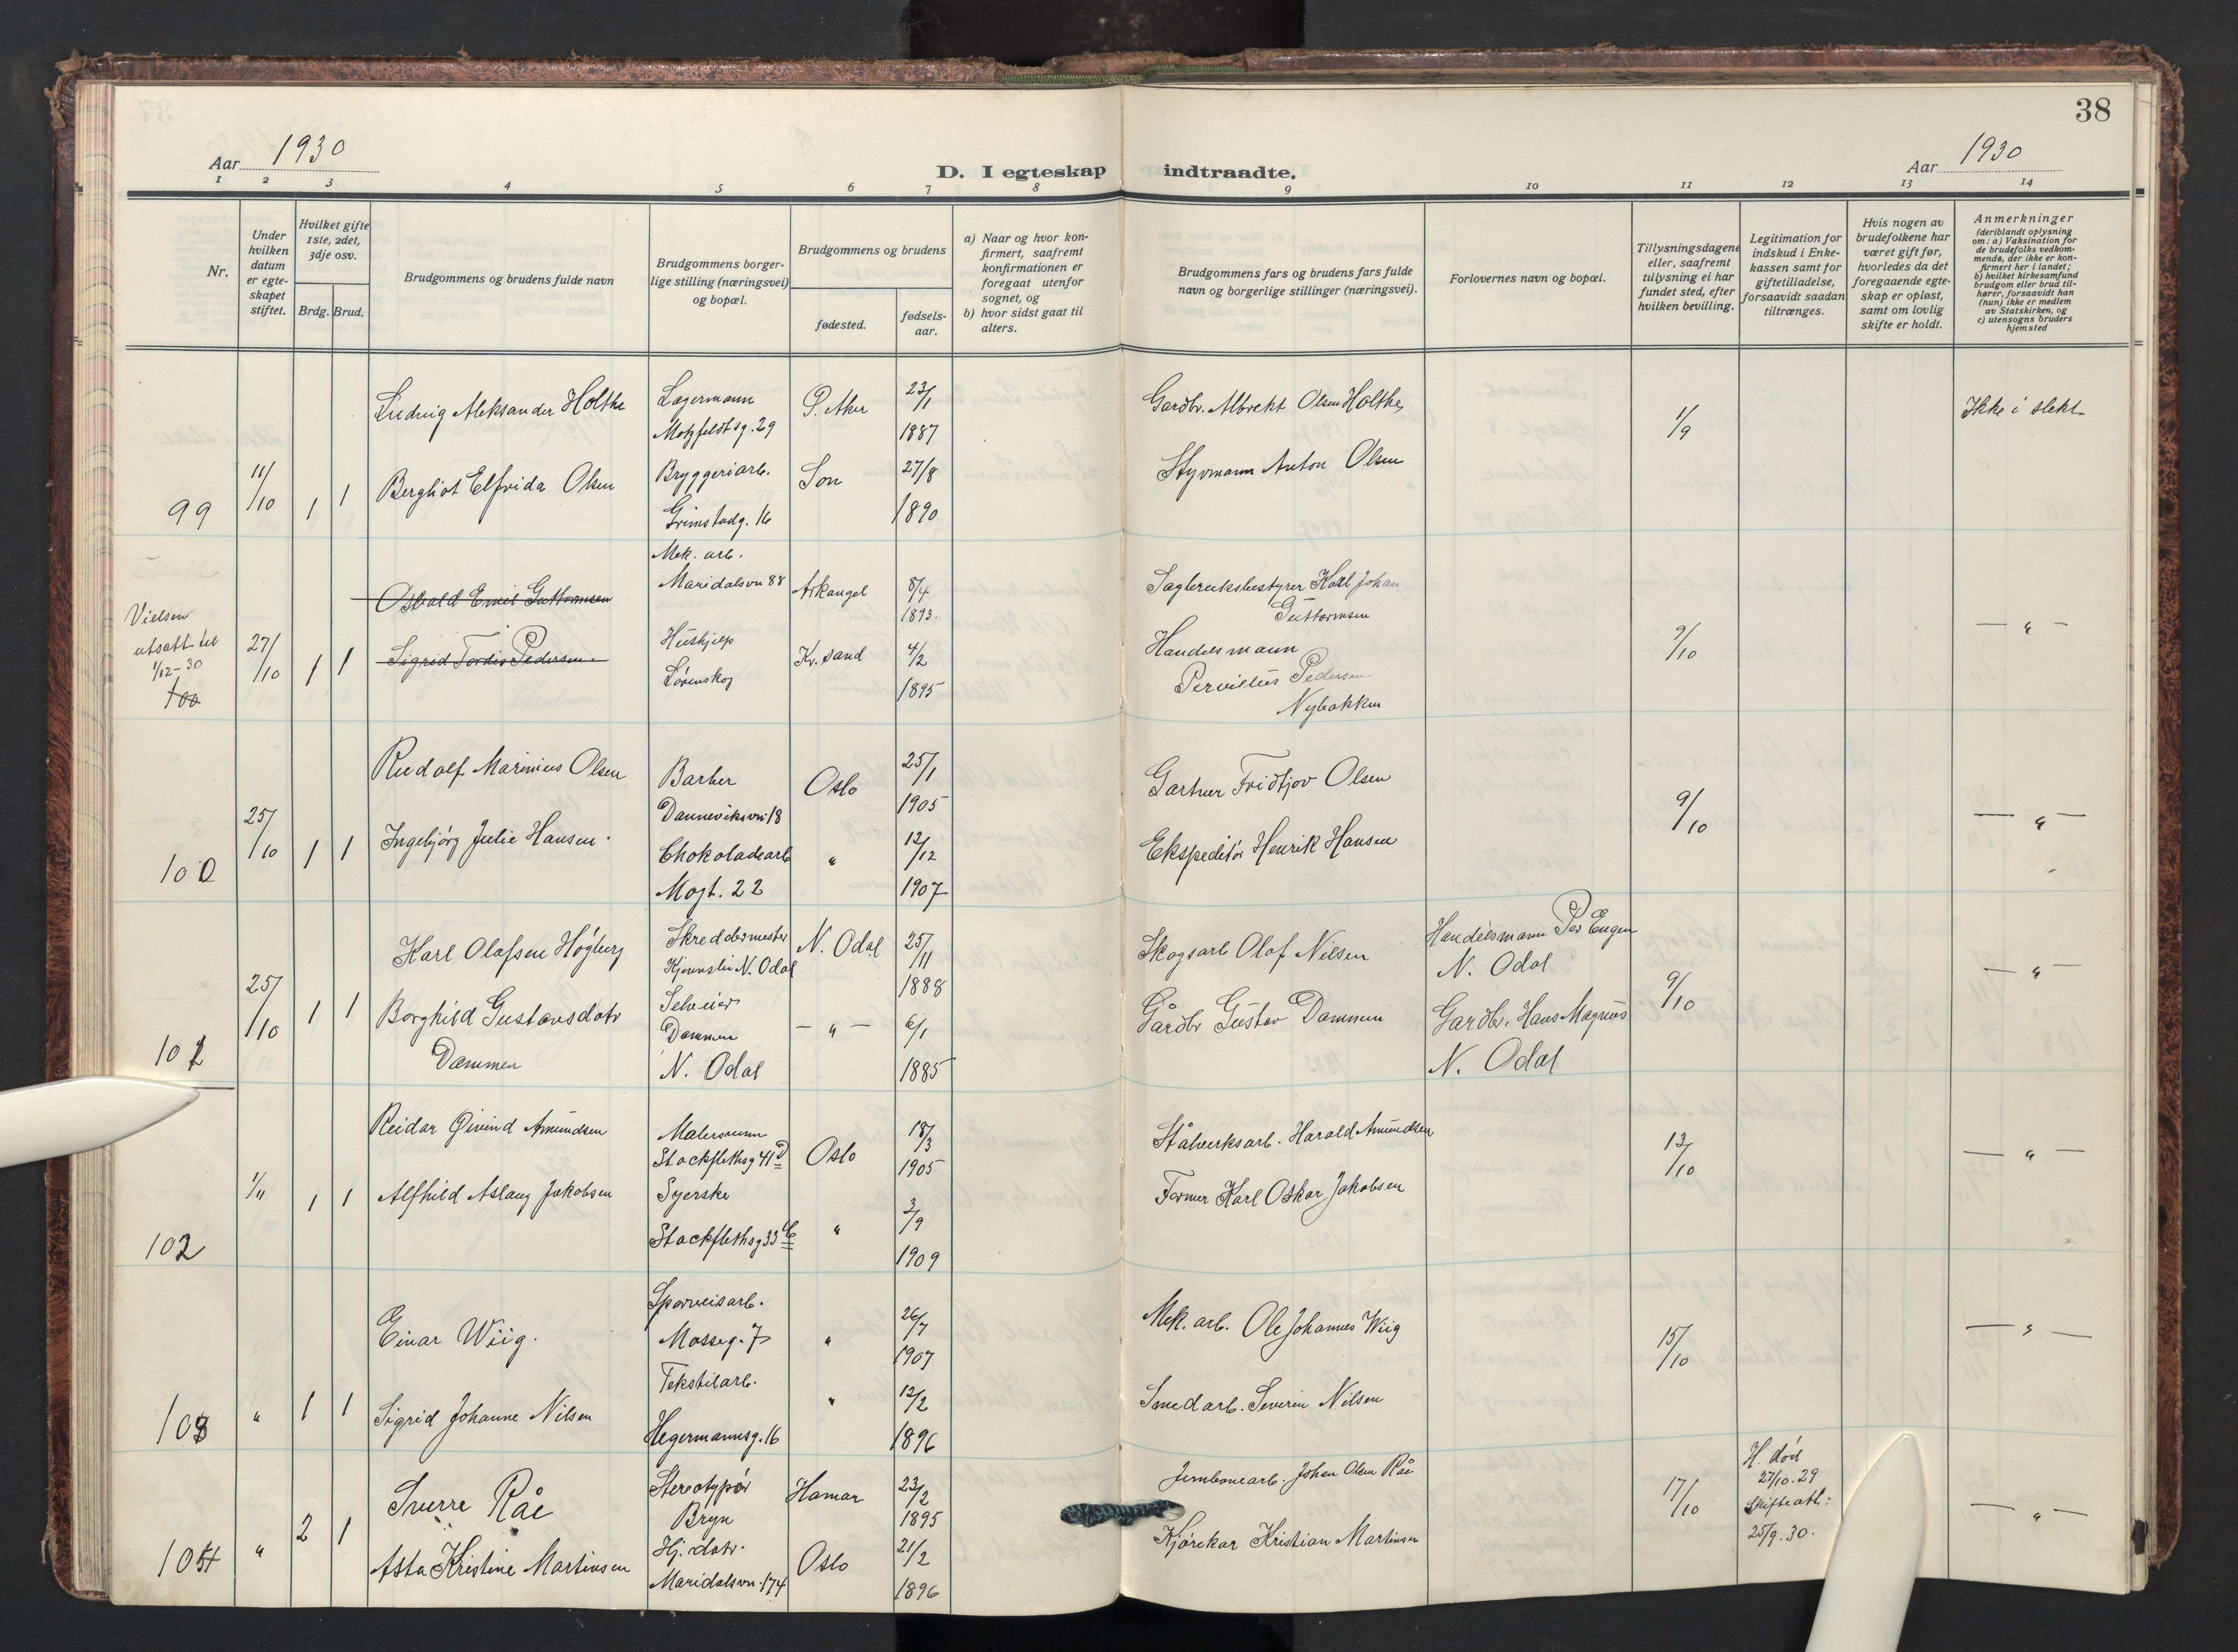 38
Aar 1930
D. I egteskap indtraadte.
Aar 1930
1 2 3 4 5 6 7 8 9 10 11 12 13 14
Nr.
Under hvilken datum er egte-skapet stiftet.
Hvilket gifte 1ste, 2det, 3dje osv.
Brdg. Brud.
Brudgommens og brudens fulde navn
Brudgommens borger-lige stilling (næringsvei) og bopæl.
Brudgommens og brudens
fødested.
fødsels-aar.
a) Naar og hvor kon-firmert, saafremt konfirmationen er foregaat utenfor sognet, og
b) hvor sidst gaat til alters.
Brudgommens fars og brudens fars fulde navn og borgerlige stillinger (næringsvei).
Forlovernes navn og bopæl.
Tillysningsdagene eller, saafremt tillysning ei har fundet sted, efter hvilken bevilling.
Legitimation for indskud i Enke-kassen samt for giftetilladelse, forsaavidt saadan tiltrænges.
Hvis nogen av brudefolkene har været gift før, hvorledes da det foregaaende egte-skap er opløst, samt om lovlig skifte er holdt.
Anmerkninger (deriblandt oplysning om: a) Vaksination for de brudefolks vedkom-mende, der ikke er kon-firmert her i landet; b) hvilket kirkesamfund brudgom eller brud til-hører, forsaavidt han (hun) ikke er medlem av Statskirken, og c) utensogns bruders hjemsted
99
11/10
1 1
Ludvig Aleksander Holthe
Lagermann
Motzfeldtsg. 29
Ø. Aker
23/1
1887
Gardbr. Albrekt Olsen Holthe
1/9
Ikke i slekt
Bergliot Elfrida Olsen
Bryggeriarb.
Grimstadg. 16
Son
27/8
1890
Styrmann Anton Olsen
Vielsen
utsatt til
1/12-30
100
27/10
1 1
Osvald Emil Guttormsen
Mek. arb.
Maridalsvn 88
Arkangel
8/4
1893.
Sagbruksbestyrer Karl Johan
Guttormsen
9/10
— " —
Sigrid Tordis Pedersen
Hushjelp
Lørenskog
Kr. sand
4/2
1895
Handelsmann
Pedersen
Nybakken
100
25/10
1 1
Rudolf Marinius Olsen
Barber
Danneviksvn 18
Oslo
25/1
1905
Gartner Fridtjov Olsen
9/10
— " —
Ingebjørg Julie Hansen
Chokoladearb
Mogt. 22
"
12/12
1907
Ekspeditør Henrik Hansen
101
25/10
1 1
Karl Olafsen Høgberg
Skreddermester
N. Odal
N. Odal
25/11
1888
Skogsarb Olaf Nilsen
Handelsmann Per Engen
N. Odal
9/10
— " —
Borghild Gustavsdotr
Dammen
Selveier
Dammen
N. Odal
— " —
6/1
1885
Gårdbr Gustav Dammen
Gardbr. Hans Magnus
N. Odal
102
1/11
1 1
Reidar Øivind Amundsen
Malersvenn
Stockflethsg 41 D
Oslo
18/3
1905
Stålverksarb. Harald Amundsen
13/10
— " —
Alfhild Aslaug Jakobsen
Syerske
Stockflethsg 33
"
3/9
1909
Former Karl Oskar Jakobsen
103
"
1 1
Einar Wiig.
Sporveisarb.
Mosseg. 7
"
26/7
1907
Mek. arb. Ole Johannes Wiig
15/10
— " —
Sigrid Johanne Nilsen
Tekstilarb.
Hegermannsg. 16
"
12/2
1896
Smedarb. Severin Nilsen
104
"
2 1
Sverre Råe
Stereotypør
Bryn
Hamar
23/2
1895
Jernbanearb. Johan Olsen Råe
17/10
H. død
27/10.29
Skifteatt:
25/9.30.
— " —
Asta Kristine Martinsen
Hj. dotr.
Maridalsvn. 174
Oslo
21/2
1896
Kjørekar Kristian Martinsen